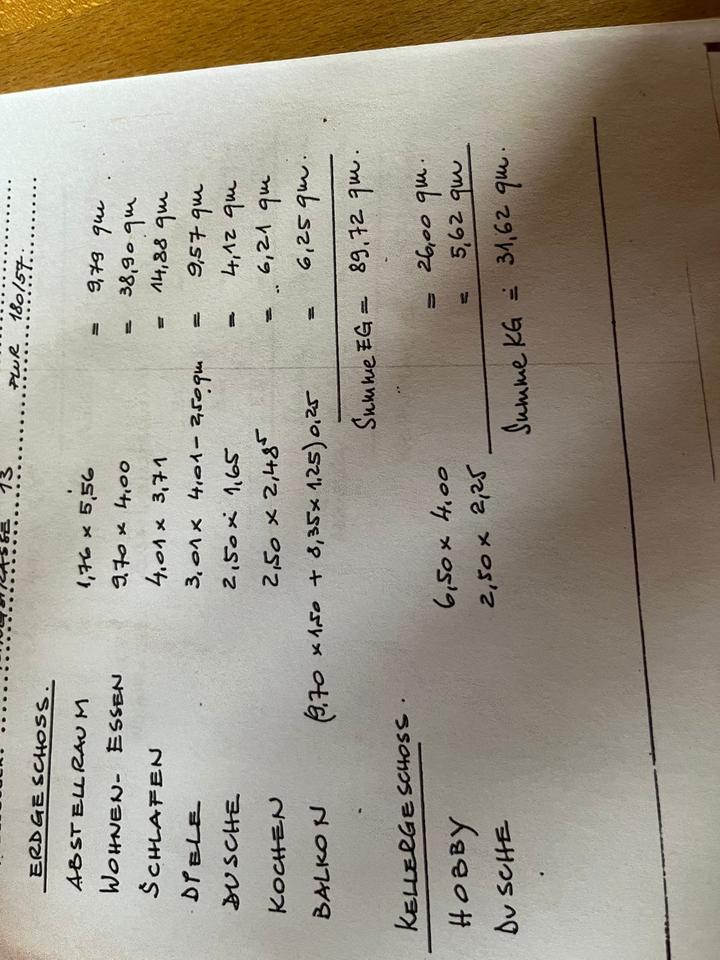 13 FLUR 180/57
ERDGESCHOSS.
ABSTELLRAUM 1,76 x 5,56 = 9,79 qm
WOHNEN-ESSEN 9,70 x 4,00 = 38,90 qm
SCHLAFEN 4,01 x 3,71 = 14,88 qm
DIELE 3,01 x 4,01 - 2,50 qm = 9,57 qm
DUSCHE 2,50 x 1,65 = 4,12 qm
KOCHEN 2,50 x 2,48⁵ = 6,21 qm
BALKON (9,70 x 1,50 + 8,35 x 1,25) 0,25 = 6,25 qm.
Summe EG = 89,72 qm.
KELLERGESCHOSS.
HOBBY 6,50 x 4,00 = 26,00 qm.
DUSCHE 2,50 x 2,25 = 5,62 qm
Summe KG = 31,62 qm.